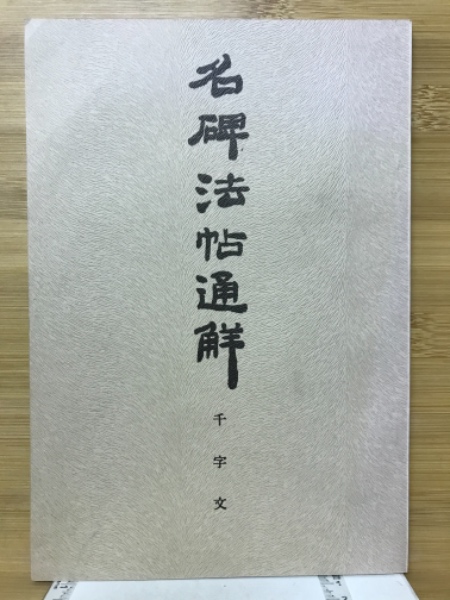 名碑法帖通觧
千字文